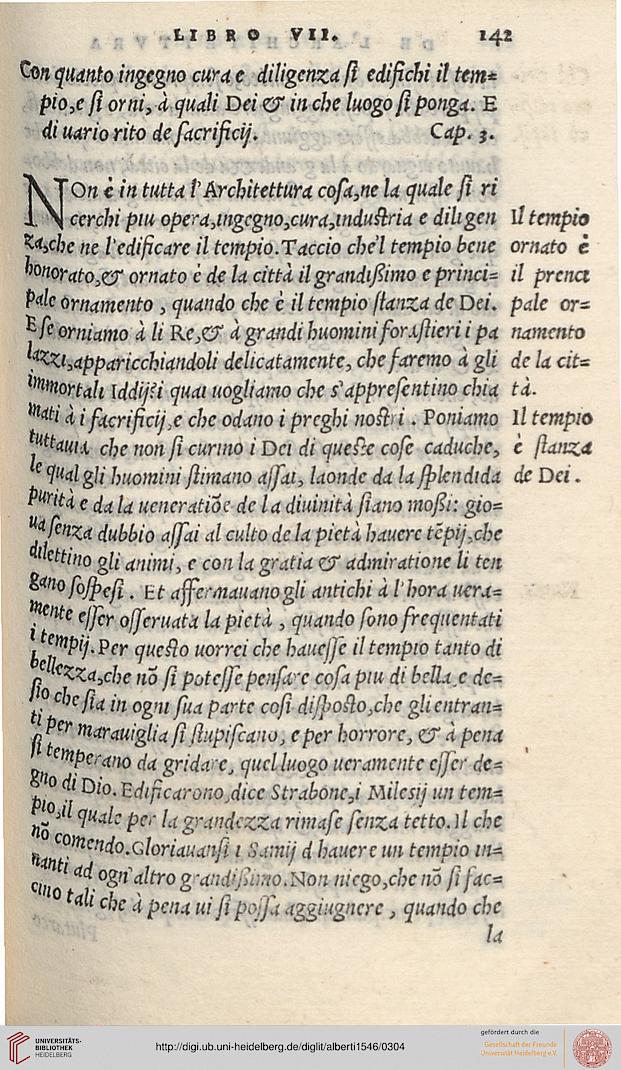 LIBRO VII. 142
Con quanto ingegno cura e diligenza ſi edifichi il tem=
pio,e ſi orni, à quali Dei & in che luogo ſi ponga. E
di uario rito de ſacrificij. Cap. 3.
NOn è in tutta l'Architettura coſa,ne la quale ſi ri
cerchi piu opera,ingegno,cura,induſtria e diligen
za,che ne l'edificare il tempio.Taccio che'l tempio bene
honorato,& ornato è de la città il grandißimo e princi=
pale ornamento , quando che è il tempio ſtanza de Dei.
E ſe orniamo à li Re,& à grandi huomini foraſtieri i pa
lazzi,apparicchiandoli delicatamente, che faremo à gli
immortali Iddij?i quai uogliamo che s'appreſentino chia
mati à i ſacrificij,e che odano i preghi noſtri . Poniamo
tuttauia che non ſi curino i Dei di queſte coſe caduche,
le qual gli huomini ſtimano aſſai, laonde da la ſplendida
purità e da la ueneratiõe de la diuinità ſiano moßi: gio=
ua ſenza dubbio aſſai al culto de la pietà hauere tẽpij,che
dilettino gli animi, e con la gratia & admiratione li ten
gano ſoſpeſi . Et affermauano gli antichi à l'hora uera=
mente eſſer oſſeruata la pietà , quando ſono frequentati
i tempij.Per queſto uorrei che haueſſe il tempio tanto di
bellezza,che nõ ſi poteſſe penſare coſa piu di bella,e de=
ſio che ſia in ogni ſua parte coſi diſpoſto,che gli entran=
ti per marauiglia ſi ſtupiſcano, e per horrore, & à pena
ſi temperano da gridare, quel luogo ueramente eſſer de=
gno di Dio. Edificarono,dice Strabone,i Milesij un tem=
pio,il quale per la grandezza rimaſe ſenza tetto.Il che
nõ comendo.Gloriauanſi i Samij d hauere un tempio in=
nanti ad ogn'altro grandißimo.Non niego,che nõ ſi fac=
cino tali che à pena ui ſi poſſa aggiugnere , quando che
la
Il tempio
ornato è
il princi
pale or=
namento
de la cit=
tà.
Il tempio
è ſtanza
de Dei .
UNIVERSITÄTS-
BIBLIOTHEK
HEIDELBERG
http://digi.ub.uni-heidelberg.de/diglit/alberti1546/0304
gefördert durch die
Gesellschaft der Freunde
Universität Heidelberg e.V.